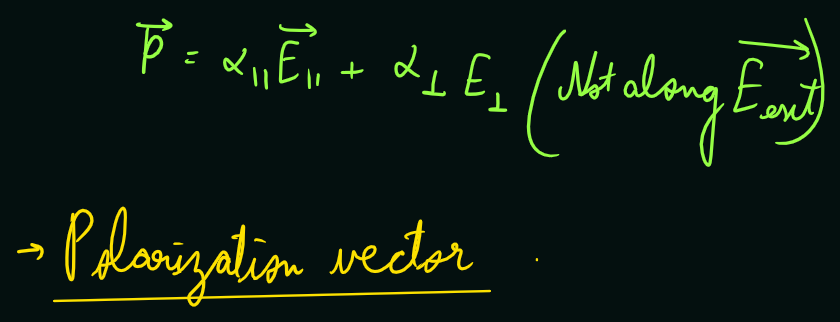 \vec{p} = α_{||} \vec{E}_{||} + α_⊥ E_⊥ (Not along \vec{E}_{ext})
→ Polarization vector